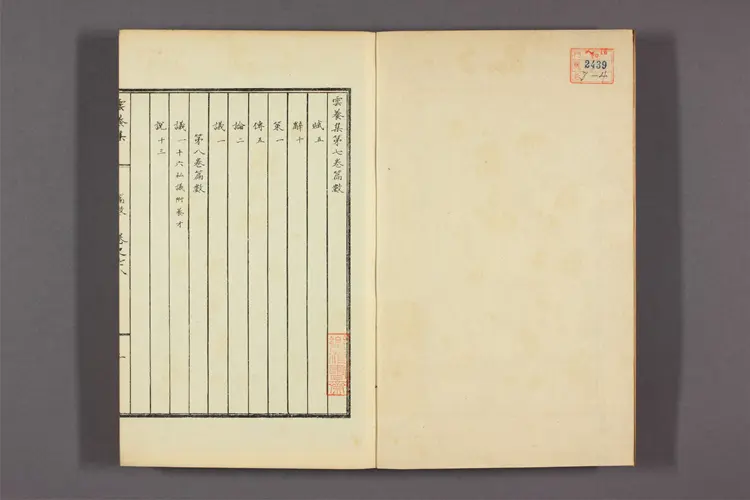 雲養集第七卷篇數
賦五
辭十
策一
傳五
論二
議一
第八卷篇數
議一十六私議附養才
說十三
雲養集
篇數 卷之七八
一
2439
7-4